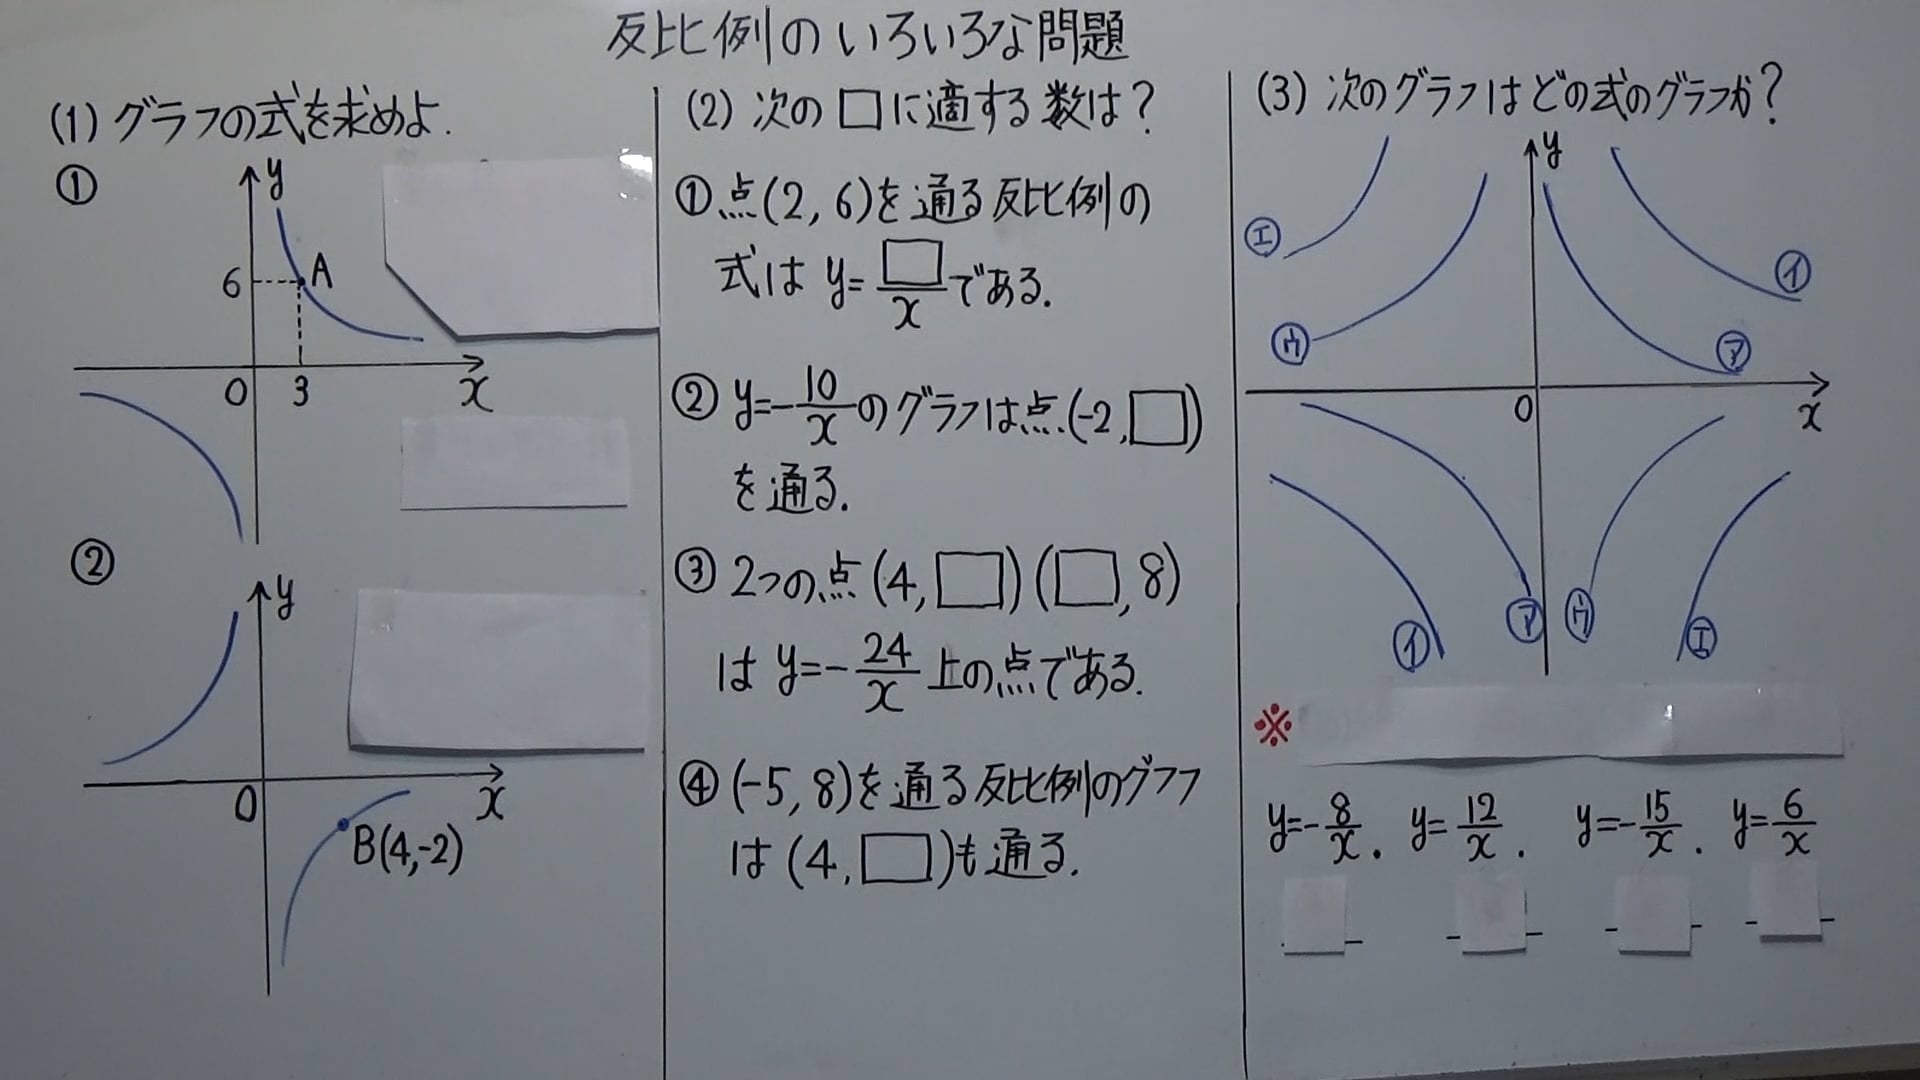 反比例のいろいろな問題
(1) グラフの式を求めよ.
①
y
6
A
0
3
x
②
y
0
x
B(4,-2)
(2) 次の□に適する数は？
①点(2, 6)を通る反比例の
式は y=□/xである.
②y=-10/xのグラフは点(-2,□)
を通る.
③ 2つの点(4,□)(□,8)
は y=-24/x上の点である.
④(-5,8)を通る反比例のグラフ
は(4,□)も通る.
(3) 次のグラフはどの式のグラフか？
y
エ
イ
ウ
ア
0
x
イ
ア
ウ
エ
※
y=-8/x. y=12/x. y=-15/x. y=6/x